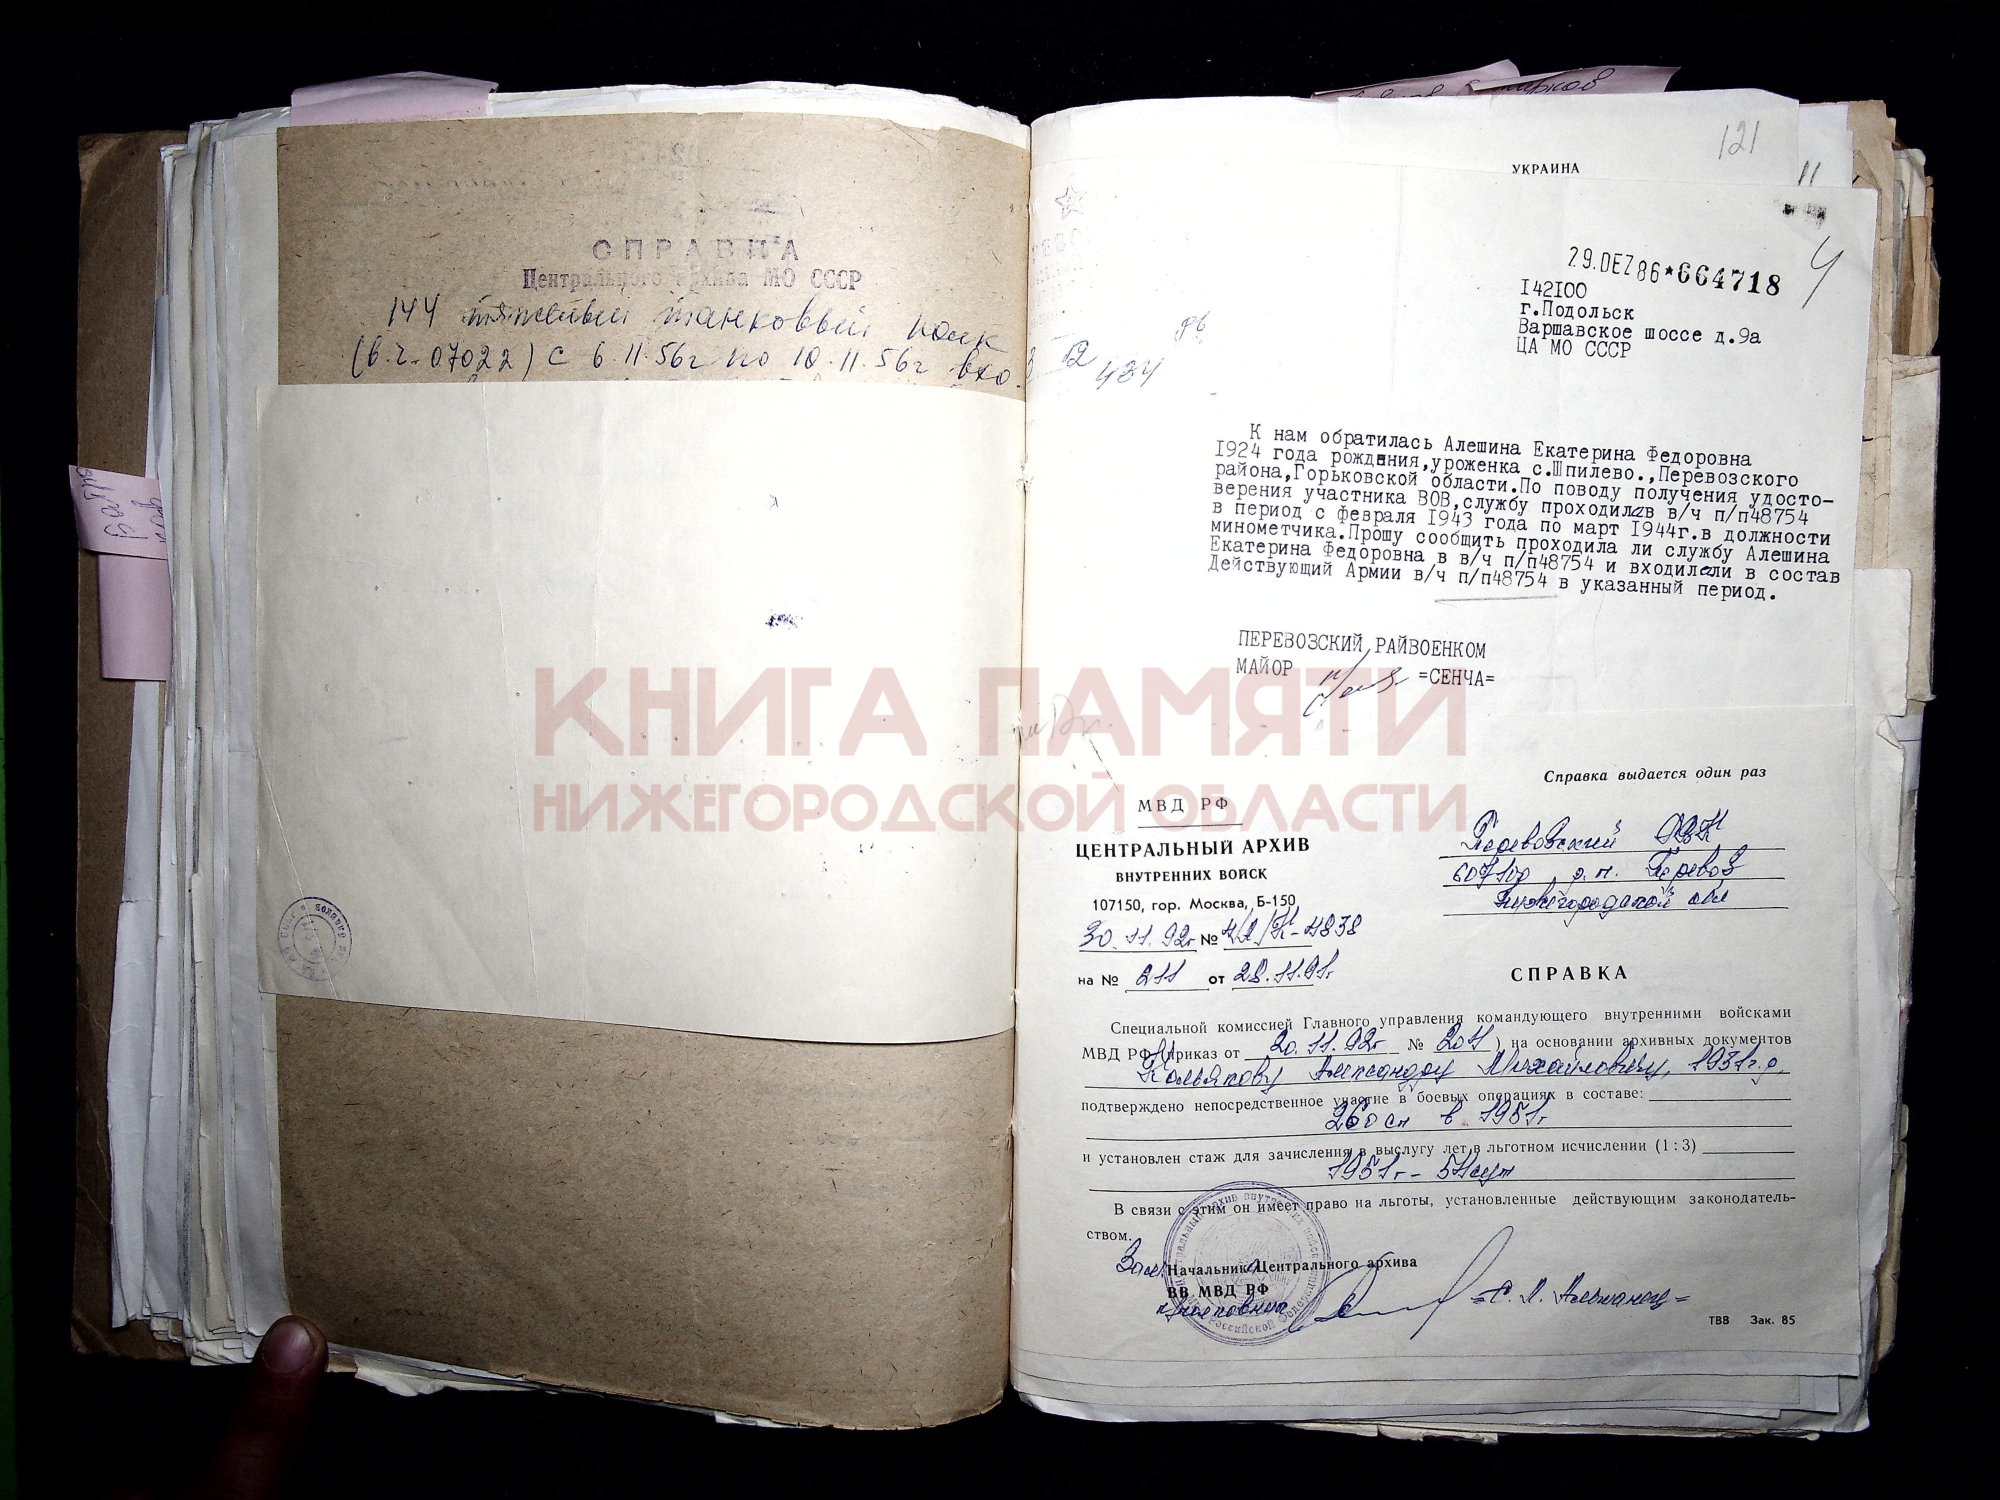 СПРАВКА
Центрального архива МО СССР
144 тяжелый танковый полк
(в.ч. 07022) с 6.11.56г по 10.11.56г вхо
121
УКРАИНА
11
4
29.DEZ86*664718
142100
г.Подольск
Варшавское шоссе д.9а
ЦА МО СССР
484
К нам обратилась Алешина Екатерина Федоровна
1924 года рождения,уроженка с.Шпилево.,Перевозского
района,Горьковской области.По поводу получения удосто-
верения участника ВОВ,службу проходилав в/ч п/п48754
в период с февраля 1943 года по март 1944г.в должности
минометчика.Прошу сообщить проходила ли службу Алешина
Екатерина Федоровна в в/ч п/п48754 и входилали в состав
Действующий Армии в/ч п/п48754 в указанный период.
ПЕРЕВОЗСКИЙ РАЙВОЕНКОМ
МАЙОР =СЕНЧА=
КНИГА ПАМЯТИ
НИЖЕГОРОДСКОЙ ОБЛАСТИ
Справка выдается один раз
МВД РФ
ЦЕНТРАЛЬНЫЙ АРХИВ
ВНУТРЕННИХ ВОЙСК
107150, гор. Москва, Б-150
30.11.92г № 4/1/К-4838
на № 211 от 28.11.91г
Перевозский РВК
р.п. Перевоз
Нижегородской обл
СПРАВКА
Специальной комиссией Главного управления командующего внутренними войсками
МВД РФ (приказ от 20.11.92г № 204) на основании архивных документов
Кольякову Александру Михайловичу, 1931г.р.
подтверждено непосредственное участие в боевых операциях в составе:
260 сп в 1951г
и установлен стаж для зачисления в выслугу лет в льготном исчислении (1:3)
1951г - 54сут
В связи с этим он имеет право на льготы, установленные действующим законодатель-
ством.
Зам. Начальник Центрального архива
ВВ МВД РФ
ТВВ Зак. 85